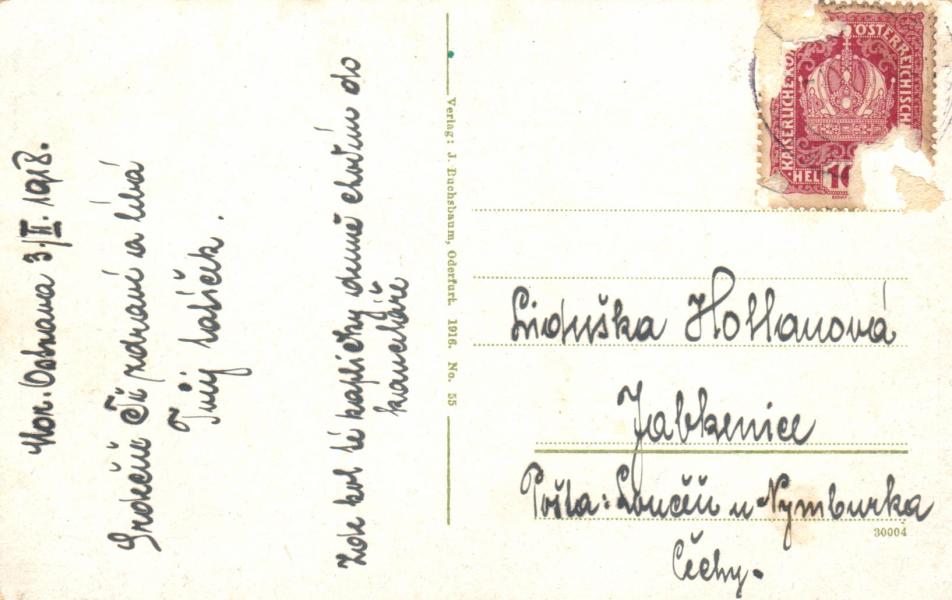 Mor. Ostrava 3./II. 1918.
Srdečně Tě zdraví a líbá
Tvůj tatíček.
Zde kol té kapličky denně chodím do
kanceláře
Verlag: J. Buchsbaum, Oderfurt 1916. No. 55
KAISERLICHE KÖ
ÖSTERREICHISCH
HEL 10
Liduška Hollanová
Jabkenice
Pošta: Loučeň u Nymburka
Čechy.
30004